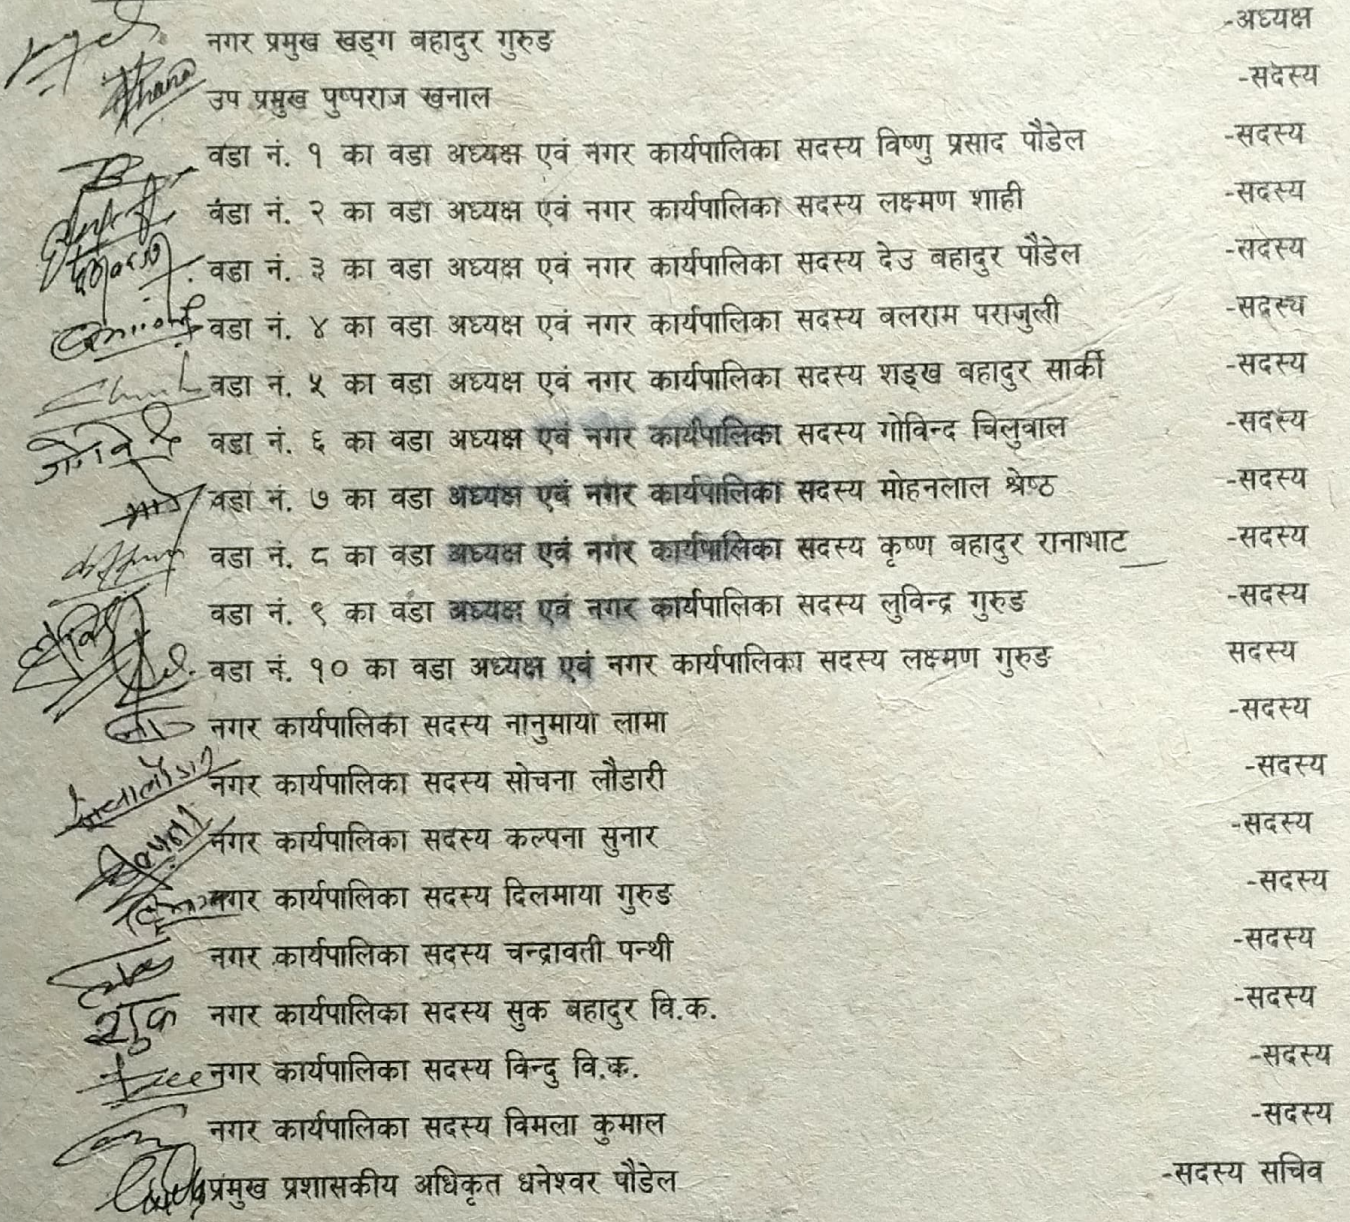 नगर प्रमुख खड्ग बहादुर गुरुङ -अध्यक्ष
उप प्रमुख पुष्पराज खनाल -सदस्य
वडा नं. १ का वडा अध्यक्ष एवं नगर कार्यपालिका सदस्य विष्णु प्रसाद पौडेल -सदस्य
वडा नं. २ का वडा अध्यक्ष एवं नगर कार्यपालिका सदस्य लक्ष्मण शाही -सदस्य
वडा नं. ३ का वडा अध्यक्ष एवं नगर कार्यपालिका सदस्य देउ बहादुर पौडेल -सदस्य
वडा नं. ४ का वडा अध्यक्ष एवं नगर कार्यपालिका सदस्य बलराम पराजुली -सदस्य
वडा नं. ५ का वडा अध्यक्ष एवं नगर कार्यपालिका सदस्य शङ्ख बहादुर सार्की -सदस्य
वडा नं. ६ का वडा अध्यक्ष एवं नगर कार्यपालिका सदस्य गोविन्द चिलुवाल -सदस्य
वडा नं. ७ का वडा अध्यक्ष एवं नगर कार्यपालिका सदस्य मोहनलाल श्रेष्ठ -सदस्य
वडा नं. ८ का वडा अध्यक्ष एवं नगर कार्यपालिका सदस्य कृष्ण बहादुर रानाभाट -सदस्य
वडा नं. ९ का वडा अध्यक्ष एवं नगर कार्यपालिका सदस्य लुविन्द्र गुरुङ -सदस्य
वडा नं. १० का वडा अध्यक्ष एवं नगर कार्यपालिका सदस्य लक्ष्मण गुरुङ सदस्य
नगर कार्यपालिका सदस्य नानुमाया लामा -सदस्य
नगर कार्यपालिका सदस्य सोचना लौडारी -सदस्य
नगर कार्यपालिका सदस्य कल्पना सुनार -सदस्य
नगर कार्यपालिका सदस्य दिलमाया गुरुङ -सदस्य
नगर कार्यपालिका सदस्य चन्द्रावती पन्थी -सदस्य
शुक नगर कार्यपालिका सदस्य सुक बहादुर वि.क. -सदस्य
नगर कार्यपालिका सदस्य विन्दु वि.क. -सदस्य
नगर कार्यपालिका सदस्य विमला कुमाल -सदस्य
प्रमुख प्रशासकीय अधिकृत धनेश्वर पौडेल -सदस्य सचिव